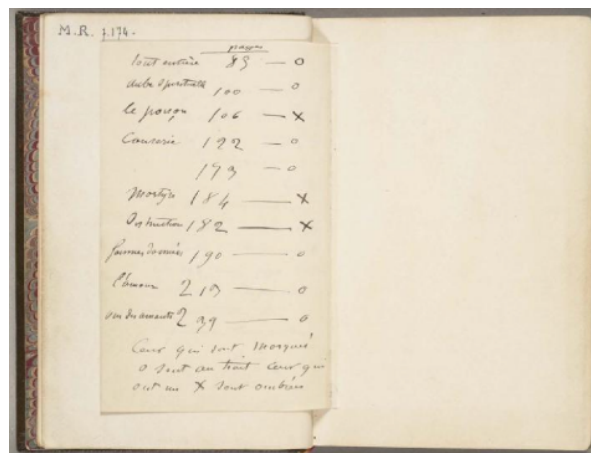 M.R. 7.174.
pages
tout entière 85 — o
aube spirituelle 100 — o
le poison 106 — X
Causerie 122 — o
193 — o
Martyre 184 — X
Destruction 182 — X
femmes damnées 190 — o
l'amour 213 — o
mort des amants 239 — o
Ceux qui sont marqués
o sont au trait ceux qui
ont un X sont ombrés